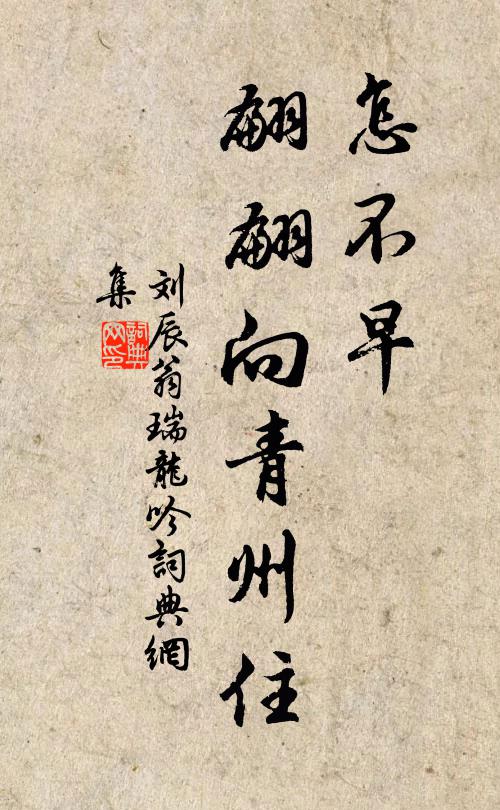 怎不早
翩翩向青州住
刘辰翁瑞龍吟詞典網
集
詞典网印